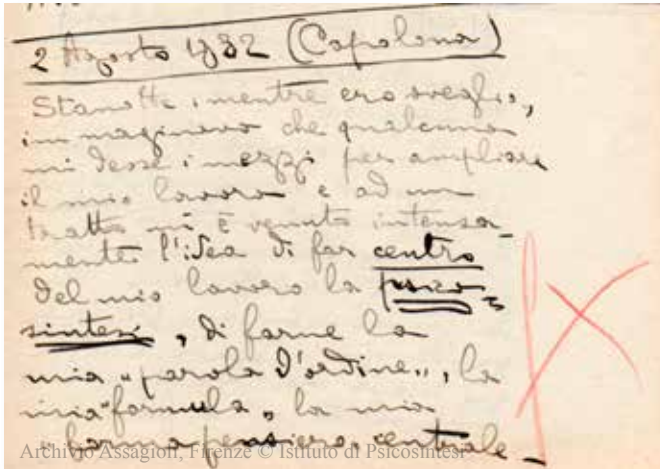 2 Agosto 1932 (Capolona)
Stanotte, mentre ero sveglio,
immaginavo che qualcuno
mi desse i mezzi per ampliare
il mio lavoro e ad un
tratto mi è venuta intensa-
mente l'idea di far centro
del mio lavoro la psico-
sintesi, di farne la
mia "parola d'ordine", la
mia "formula", la mia
"forma pensiero" centrale -
Archivio Assagioli, Firenze © Istituto di Psicosintesi